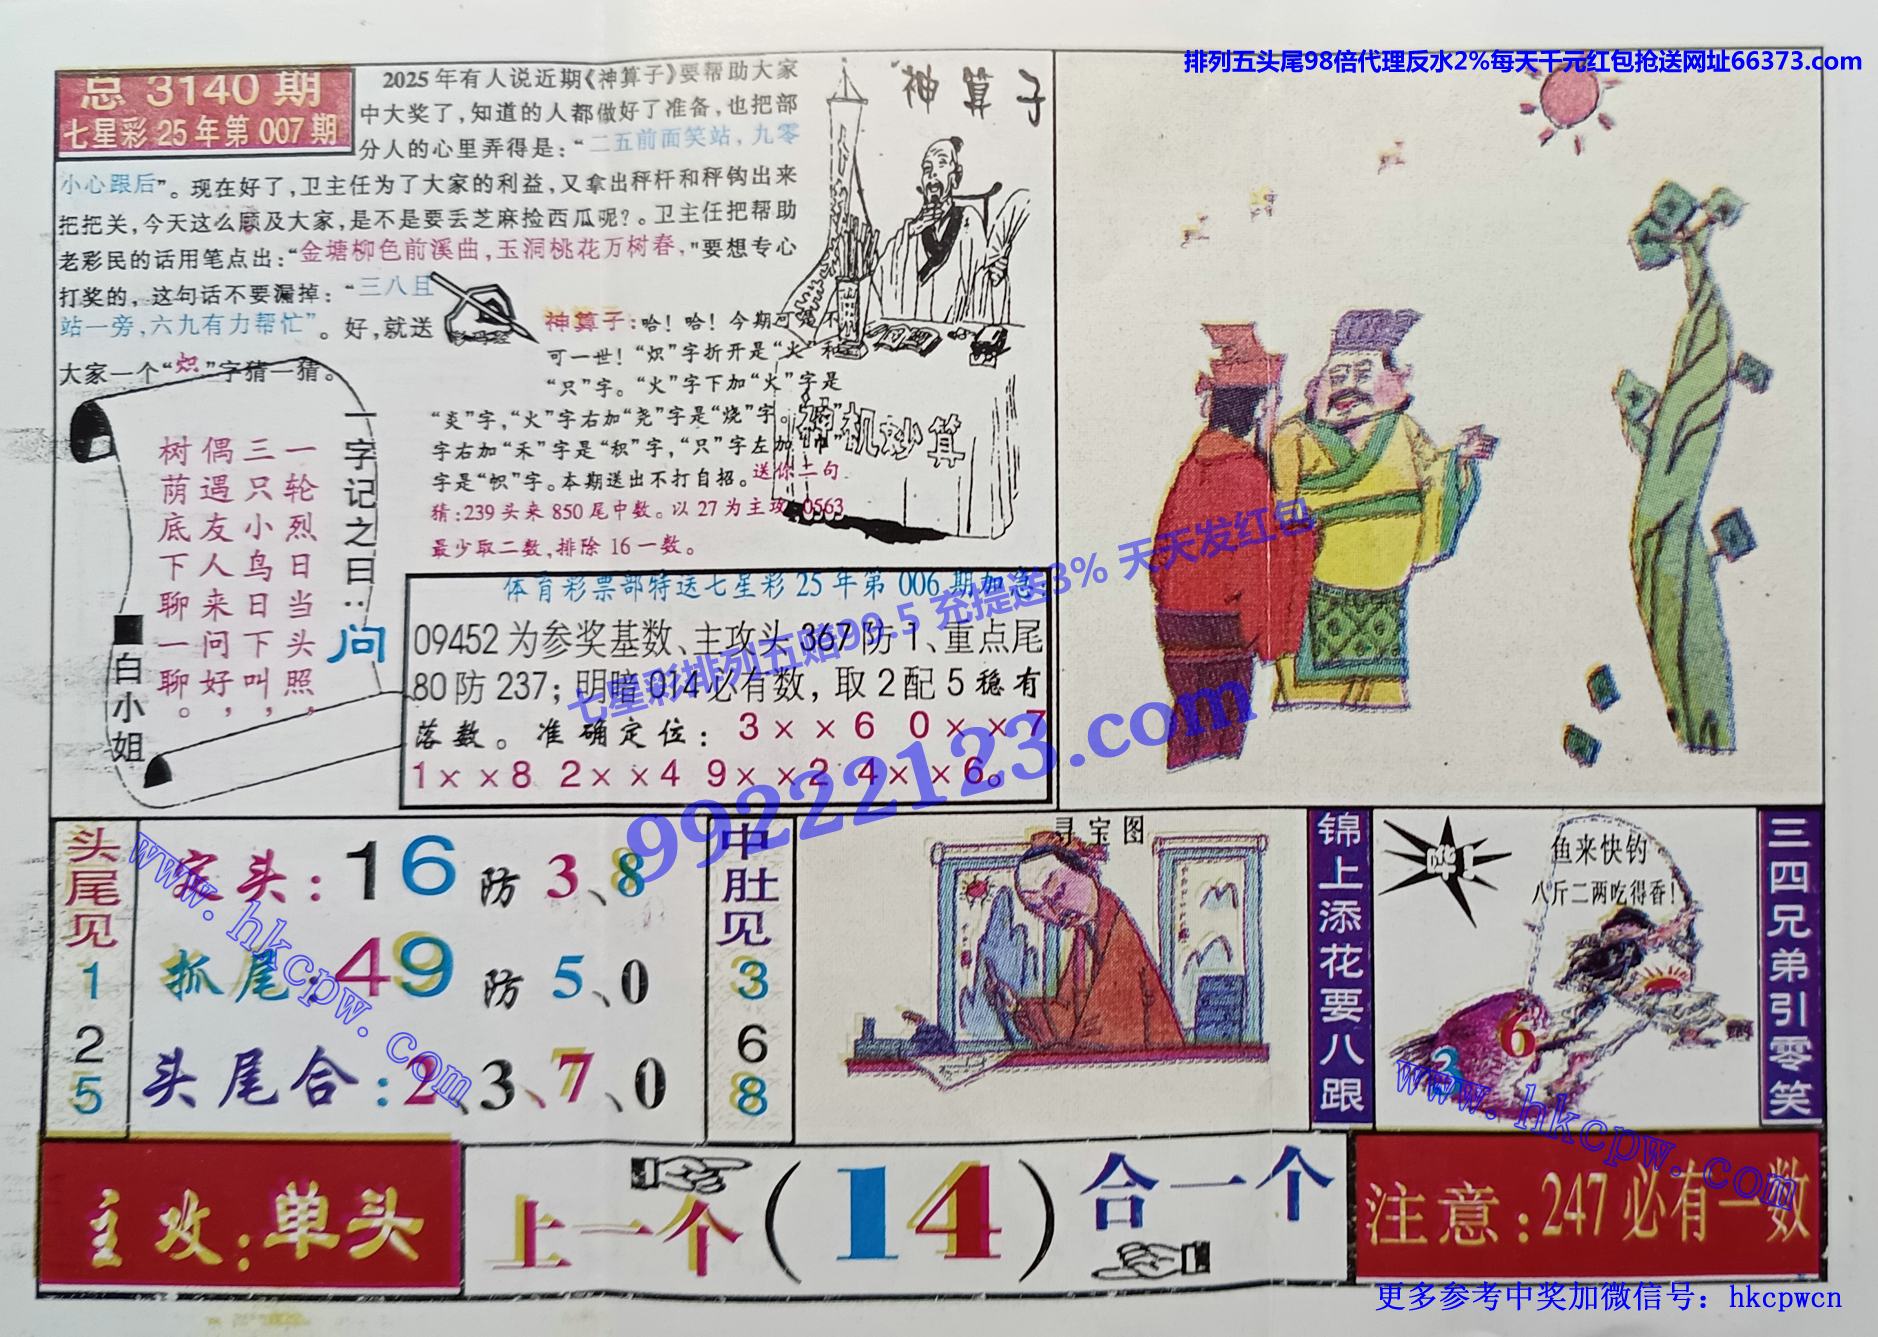 排列五头尾98倍代理反水2%每天千元红包抢送网址66373.com
总 3140 期
七星彩25年第007期
2025年有人说近期《神算子》要帮助大家
中大奖了,知道的人都做好了准备,也把部
分人的心里弄得是:“二五前面笑站,九零
小心跟后”。现在好了,卫主任为了大家的利益,又拿出秤杆和秤钩出来
把把关,今天这么顾及大家,是不是要丢芝麻捡西瓜呢?。卫主任把帮助
老彩民的话用笔点出:“金塘柳色前溪曲,玉洞桃花万树春,”要想专心
打奖的,这句话不要漏掉:“三八且
站一旁,六九有力帮忙”。好,就送
大家一个“炽”字猜一猜。
神算子
神算子:哈!哈!今期可是不
可一世!“炽”字折开是“火”和
“只”字。“火”字下加“火”字是
“炎”字,“火”字右加“尧”字是“烧”字。“只”
字右加“禾”字是“积”字,“只”字左加“巾”
字是“帜”字。本期送出不打自招。送你二句
猜:239头来850尾中数。以27为主攻,0563
最少取二数,排除16一数。
神机妙算
一字记之曰:
问
一轮烈日当头照,
三只小鸟日下叫,
偶遇友人来问好,
树荫底下聊一聊。
■白小姐
体育彩票部特送七星彩25年第006期加急
09452为参奖基数、主攻头367防1、重点尾
80防237;明暗014必有数,取2配5稳有
落数。准确定位:3××6 0××7
1××8 2××4 9××2 4××6。
七星彩排列五赔99.5 充提送3% 天天发红包
99222123.com
头尾见
1
2
5
定头:16防3、8
抓尾:49防5、0
头尾合:2、3、7、0
www.hkcpw.com
中肚见
3
6
8
寻宝图
锦上添花要八跟
鱼来快钓
八斤二两吃得香!
3
6
www.hkcpw.com
三四兄弟引零笑
主攻:单头
上一个(14)合一个
注意:247必有一数
更多参考中奖加微信号:hkcpwcn